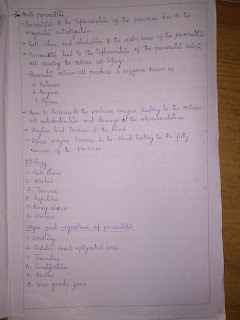 Acute pancreatitis
→ Pancreatitis is the inflammation of the pancreas due to the enzymatic autodigestion
→ Gall stone and alcoholism is the main cause of the pancreatitis
→ Pancreatitis lead to the inflammation of the pancreatic acinar cell causing the acinar cell injury.
→ Pancreatic acinar cell produce 3 enzymes known as
1. Protease
2. Amylase
3. Lipase
→ there is increase in the protease enzyme leading to the acinar cell autodestruction and damage of the
→ Amylase level increase in the blood
→ Lipase enzyme increase in the blood leading to the fatty necrosis of the pancreas
Etiology
1. Gall stones
2. Alcohol
3. Trauma
4.
5. Drug
6.
Signs and symptoms of pancreatitis
1. vomiting
2. Sudden onset epigastric pain
3. Jaundice
4. Constipation
5.
6. low grade fever